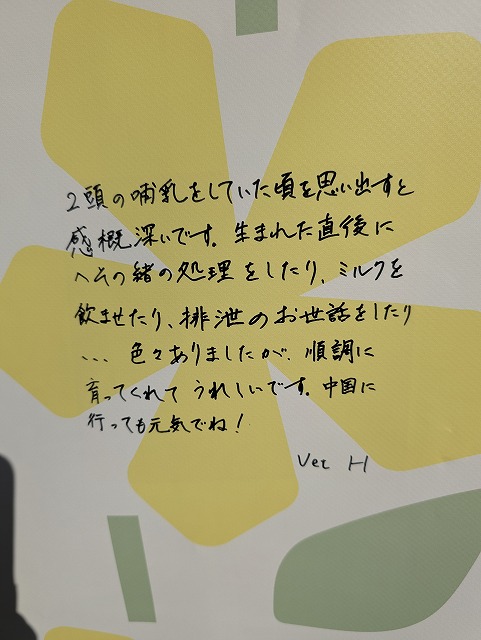 2頭の哺乳をしていた頃を思い出すと
感概深いです。生まれた直後に
へその緒の処理をしたり、ミルクを
飲ませたり、排泄のお世話をしたり
... 色々ありましたが、順調に
育ってくれてうれしいです。中国に
行っても元気でね!
Vet H